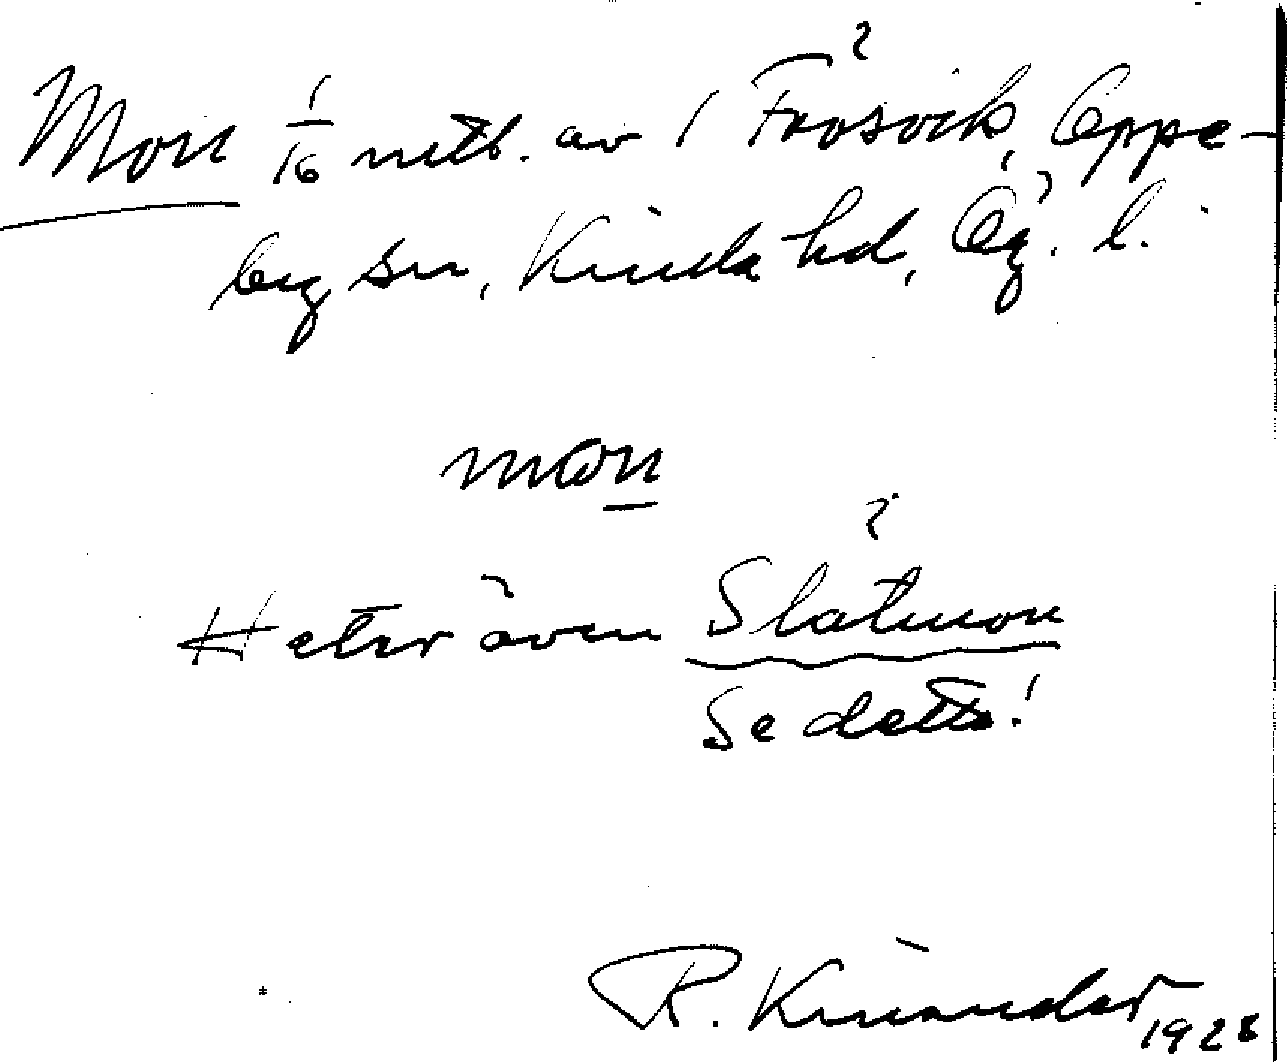 Mon 1/16 mtl. av 1 Frösvik, Oppe-
by sn, Kinda hd, Ög. l.
mωn
Heter även Slåtmon
Se detta!
R. Kinander
1928